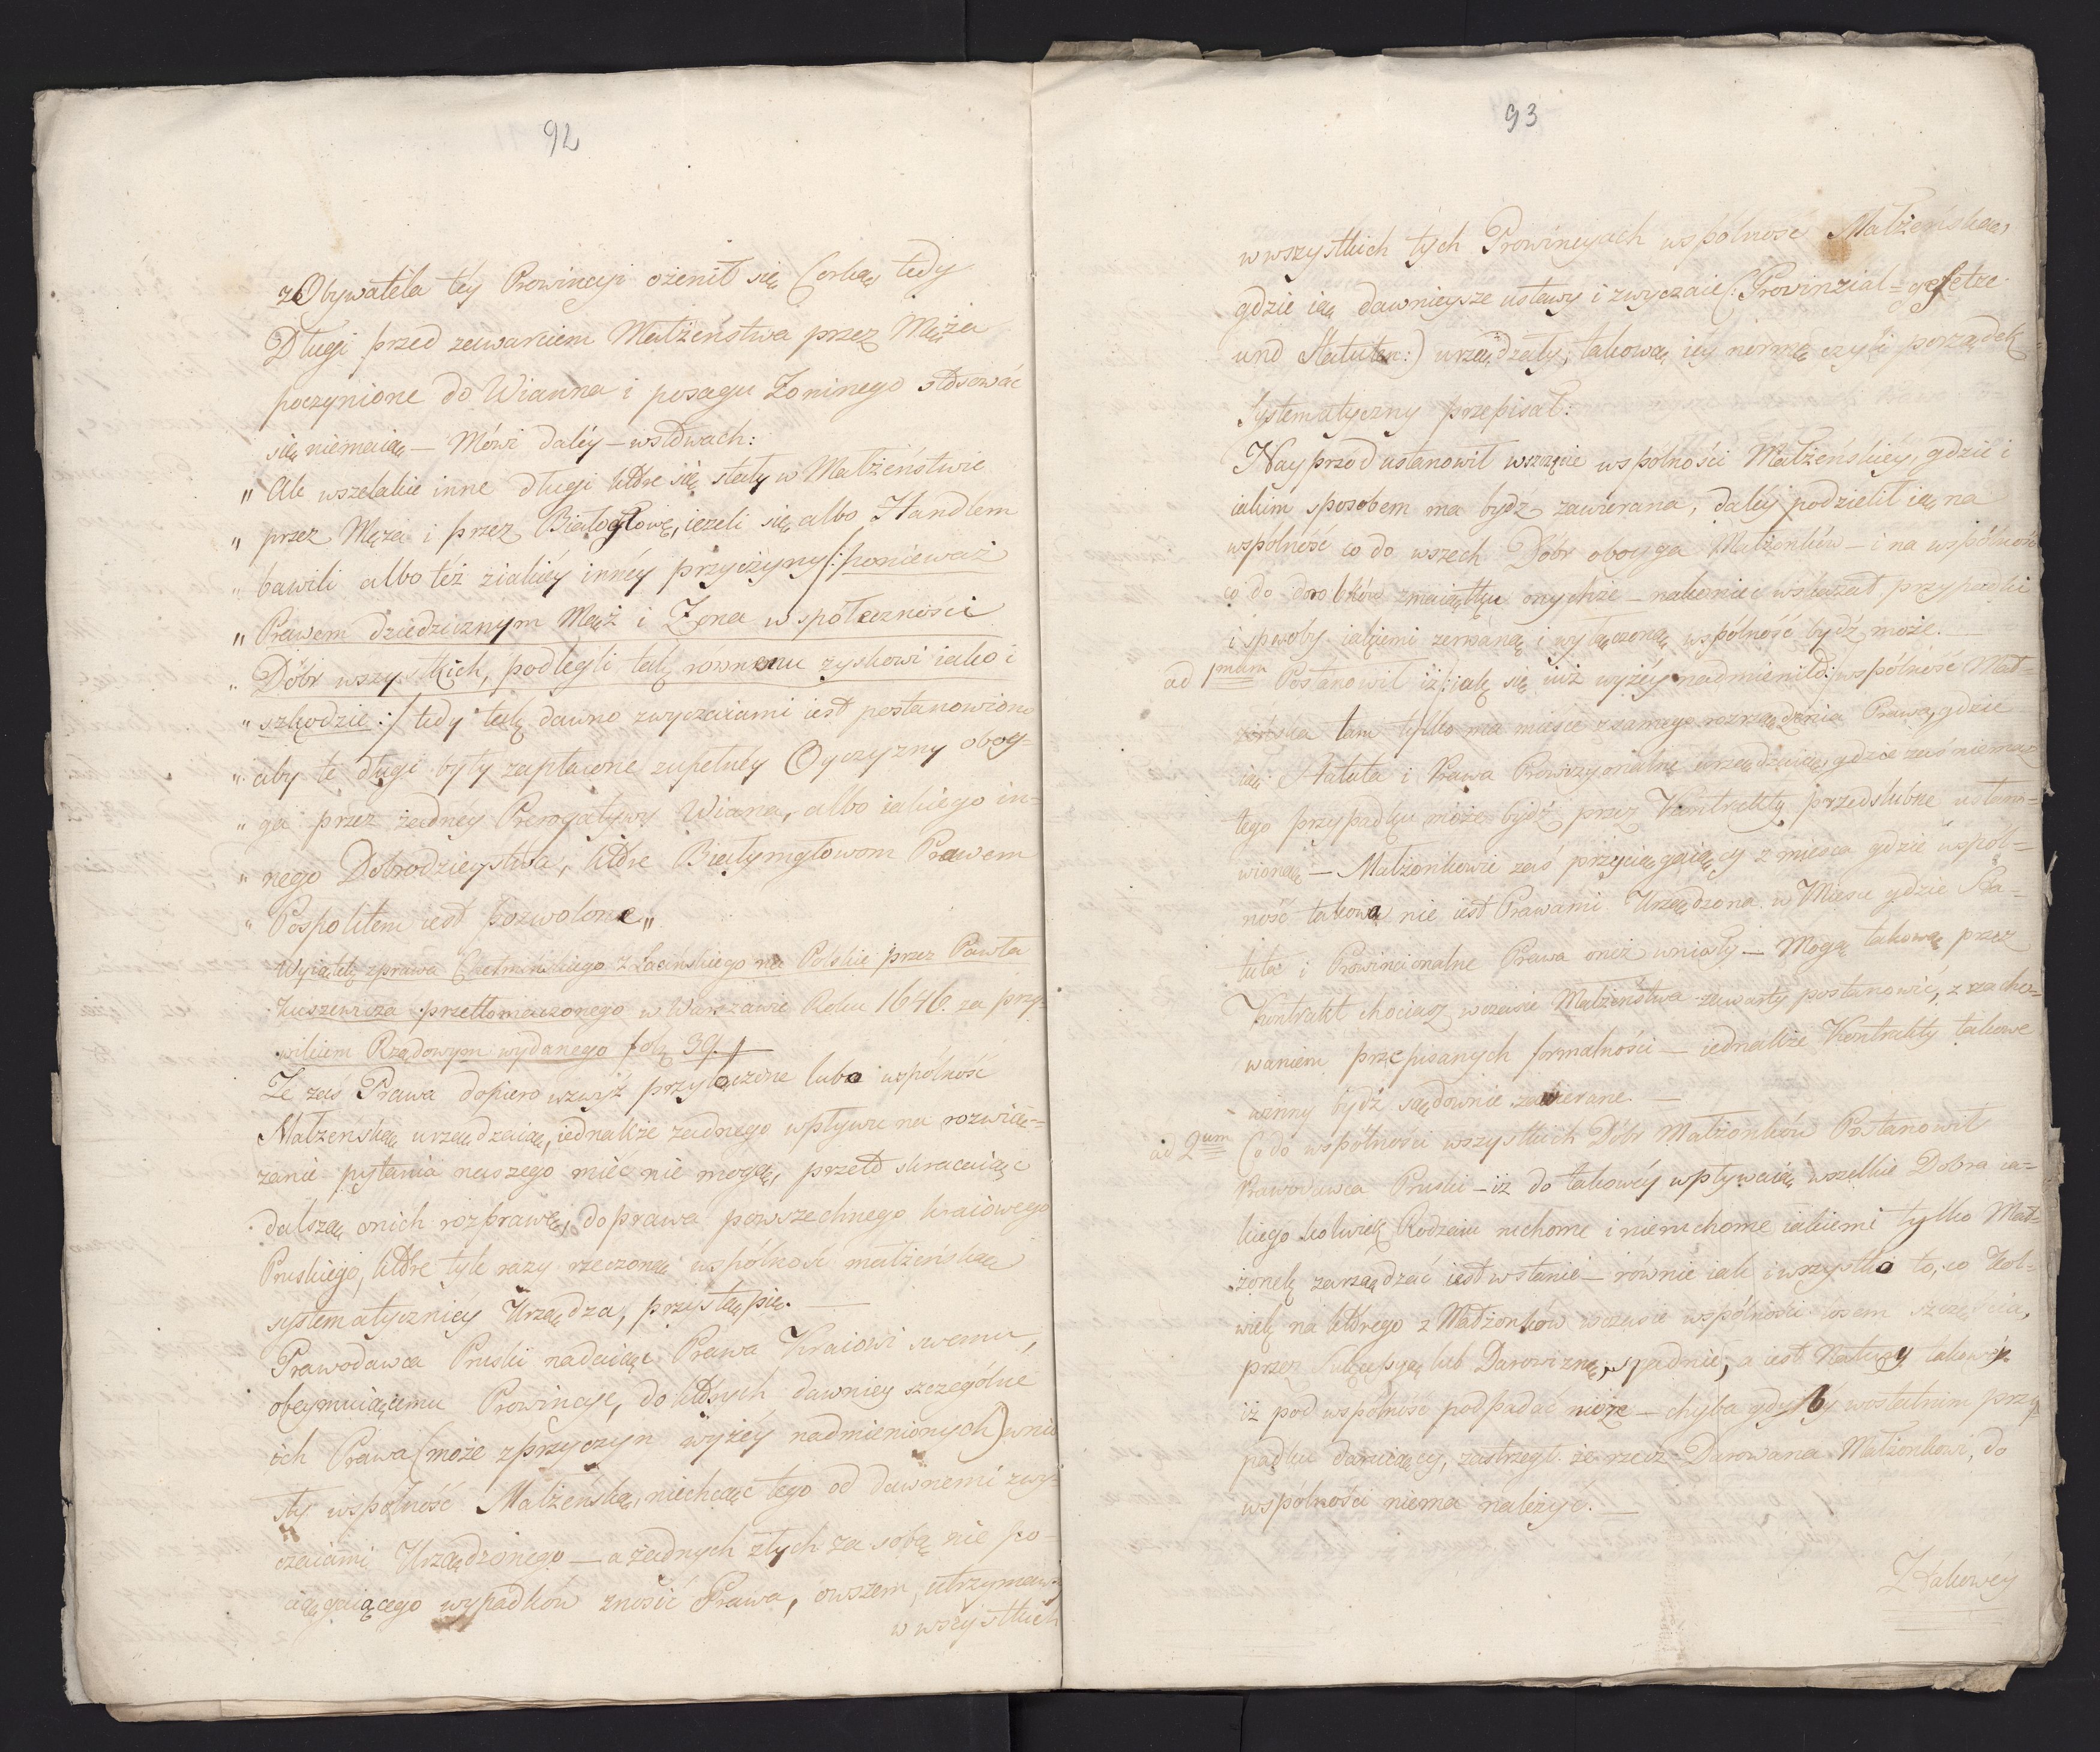 92
z Obywatela téy Prowincyi ożenił się Corką tedy
Długi przed zawarciem Małżeństwa przez Męża
poczynione do Wianna i posagu Zoninego stosować
się niemaią — Mówi daléy — wsłowach:
„ Ale wszelakie inne długi które się stały w Małżeństwie
„ przez Męza i przez Białogłowę, ieżeli się albo Handlem
„ bawili albo też ziakiéy innéy przyczyny /: ponieważ
„ Prawem dziedzicznym Mąż i Zona wspołeczności
„ Dóbr wszystkich, podlegli tak równemu zyskowi iako i
„ szkodzie :/ tedy tak dawno zwyczaiami iest postanowiono
„ aby te długi były zapłacone zupełney Oyczyzny oboy=
„ ga przez żadnéy Prerogatywy Wiana, albo iakiego in=
„ nego Dobrodzieystwa, które Białymgłowom Prawem
„ Pospolitem iest pozwolone „
Wyiątek zprawa Chełmińskiego z Łacińskiego na Polskie przez Pawła
Kuszewicza przetłomaczonego w Warszawie Roku 1646. za przy=
wileiem Rządowym wydanego fol: 39.
Że zaś Prawa dopiero wzwyż przyłączone lubo wspólność
Małżeńską urządzaią, iednakże żadnego wpływu na rozwią=
zanie pytania naszego mieć nie mogą, przeto skracaiąc
dalszą onich rozprawę, do prawa powszechnego kraiowego
Pruskiego, które tyle razy rzeczoną wspólność małżeńską
systematyczniéy Urządza, przystąpię. —
Prawodawca Pruski nadaiąc Prawa Kraiowi swemu,
obeymuiącemu Prowincye, do których dawniey szczególne
ich Prawa (może zprzyczyn wyżéy nadmienionych) wnio
sły wspólność Małżeńską, niechcąc tego od dawnemi zwy=
czaiami Urządzonego — a żadnych złych za sobą nie po=
ciągaiącego wypadków znosić Prawa, owszem, utrzymaw=
w wszystkich
93
wwszystkich tych Prowincyach wspólność Małżeńską,
gdzie ią dawnieysze ustawy i zwyczaie (: Provinzial=gesetze
und Statuten:) urządzały, takową iéy normę czyli porządek
Systematyczny przepisał:
Nayprzód ustanowił wszczęcie wspólności Małżeńskiéy, gdzie i
iakim sposobem ma bydz zawierana, daléy podzielił ią na
wspólność co do wszech Dóbr oboyga Małżonków — i na wspólność
co do dorobków zmaiątku onychże — nakoniec wskazał przypadki
i sposoby iakiemi zerwaną i wyłączoną wspólność bydź może. —
ad 1mum Postanowił iż /: iak się iuż wyżéy nadmieniło :/ wspólność Mał=
żeńska tam tylko ma mieisce zsamego rozrządzenia Prawa, gdzie
ią Statuta i Prawa Prowizyonalne urządzaią, gdzie zaś niema
tego przypadku może bydź przez Kontrakty przedslubne ustano=
wioną — Małżonkowie zaś przyciągaiący z mieisca gdzie wspól=
ność takowa nie iest Prawami Urządzona w Miesce gdzie Sta=
tuta i Prowincionalne Prawa oneż wniosły — Mogą takową przez
Kontrakt chociasz wczasie Małżeństwa zawarty postanowić, z zacho=
waniem przepisanych formalności — iednakże Kontrakty takowe
winny bydź sądownie zawierane. —
ad 2um Co do wspólności wszystkich Dóbr Małżonków Postanowił
Prawodawca Pruski — iż do takowéy wpływaią wszelkie Dobra ia=
kiego kolwiek Rodzaiu ruchome i nieruchome iakiemi tylko Mał=
żonek zarządzać iest wstanie — równie iak i wszystko to, co kol=
wiek na którego z Małżonków wczasie wspólności losem szczęścia,
przez Sukcessyą lub Darowiznę, spadnie, a iest Natury takowéy
iż pod wspólność podpadać może — chyba gdyby wostatnim przy=
padku daruiący, zastrzegł że rzecz Darowana Małżonkowi, do
wspólności niema należyć. —
Ztakowéy